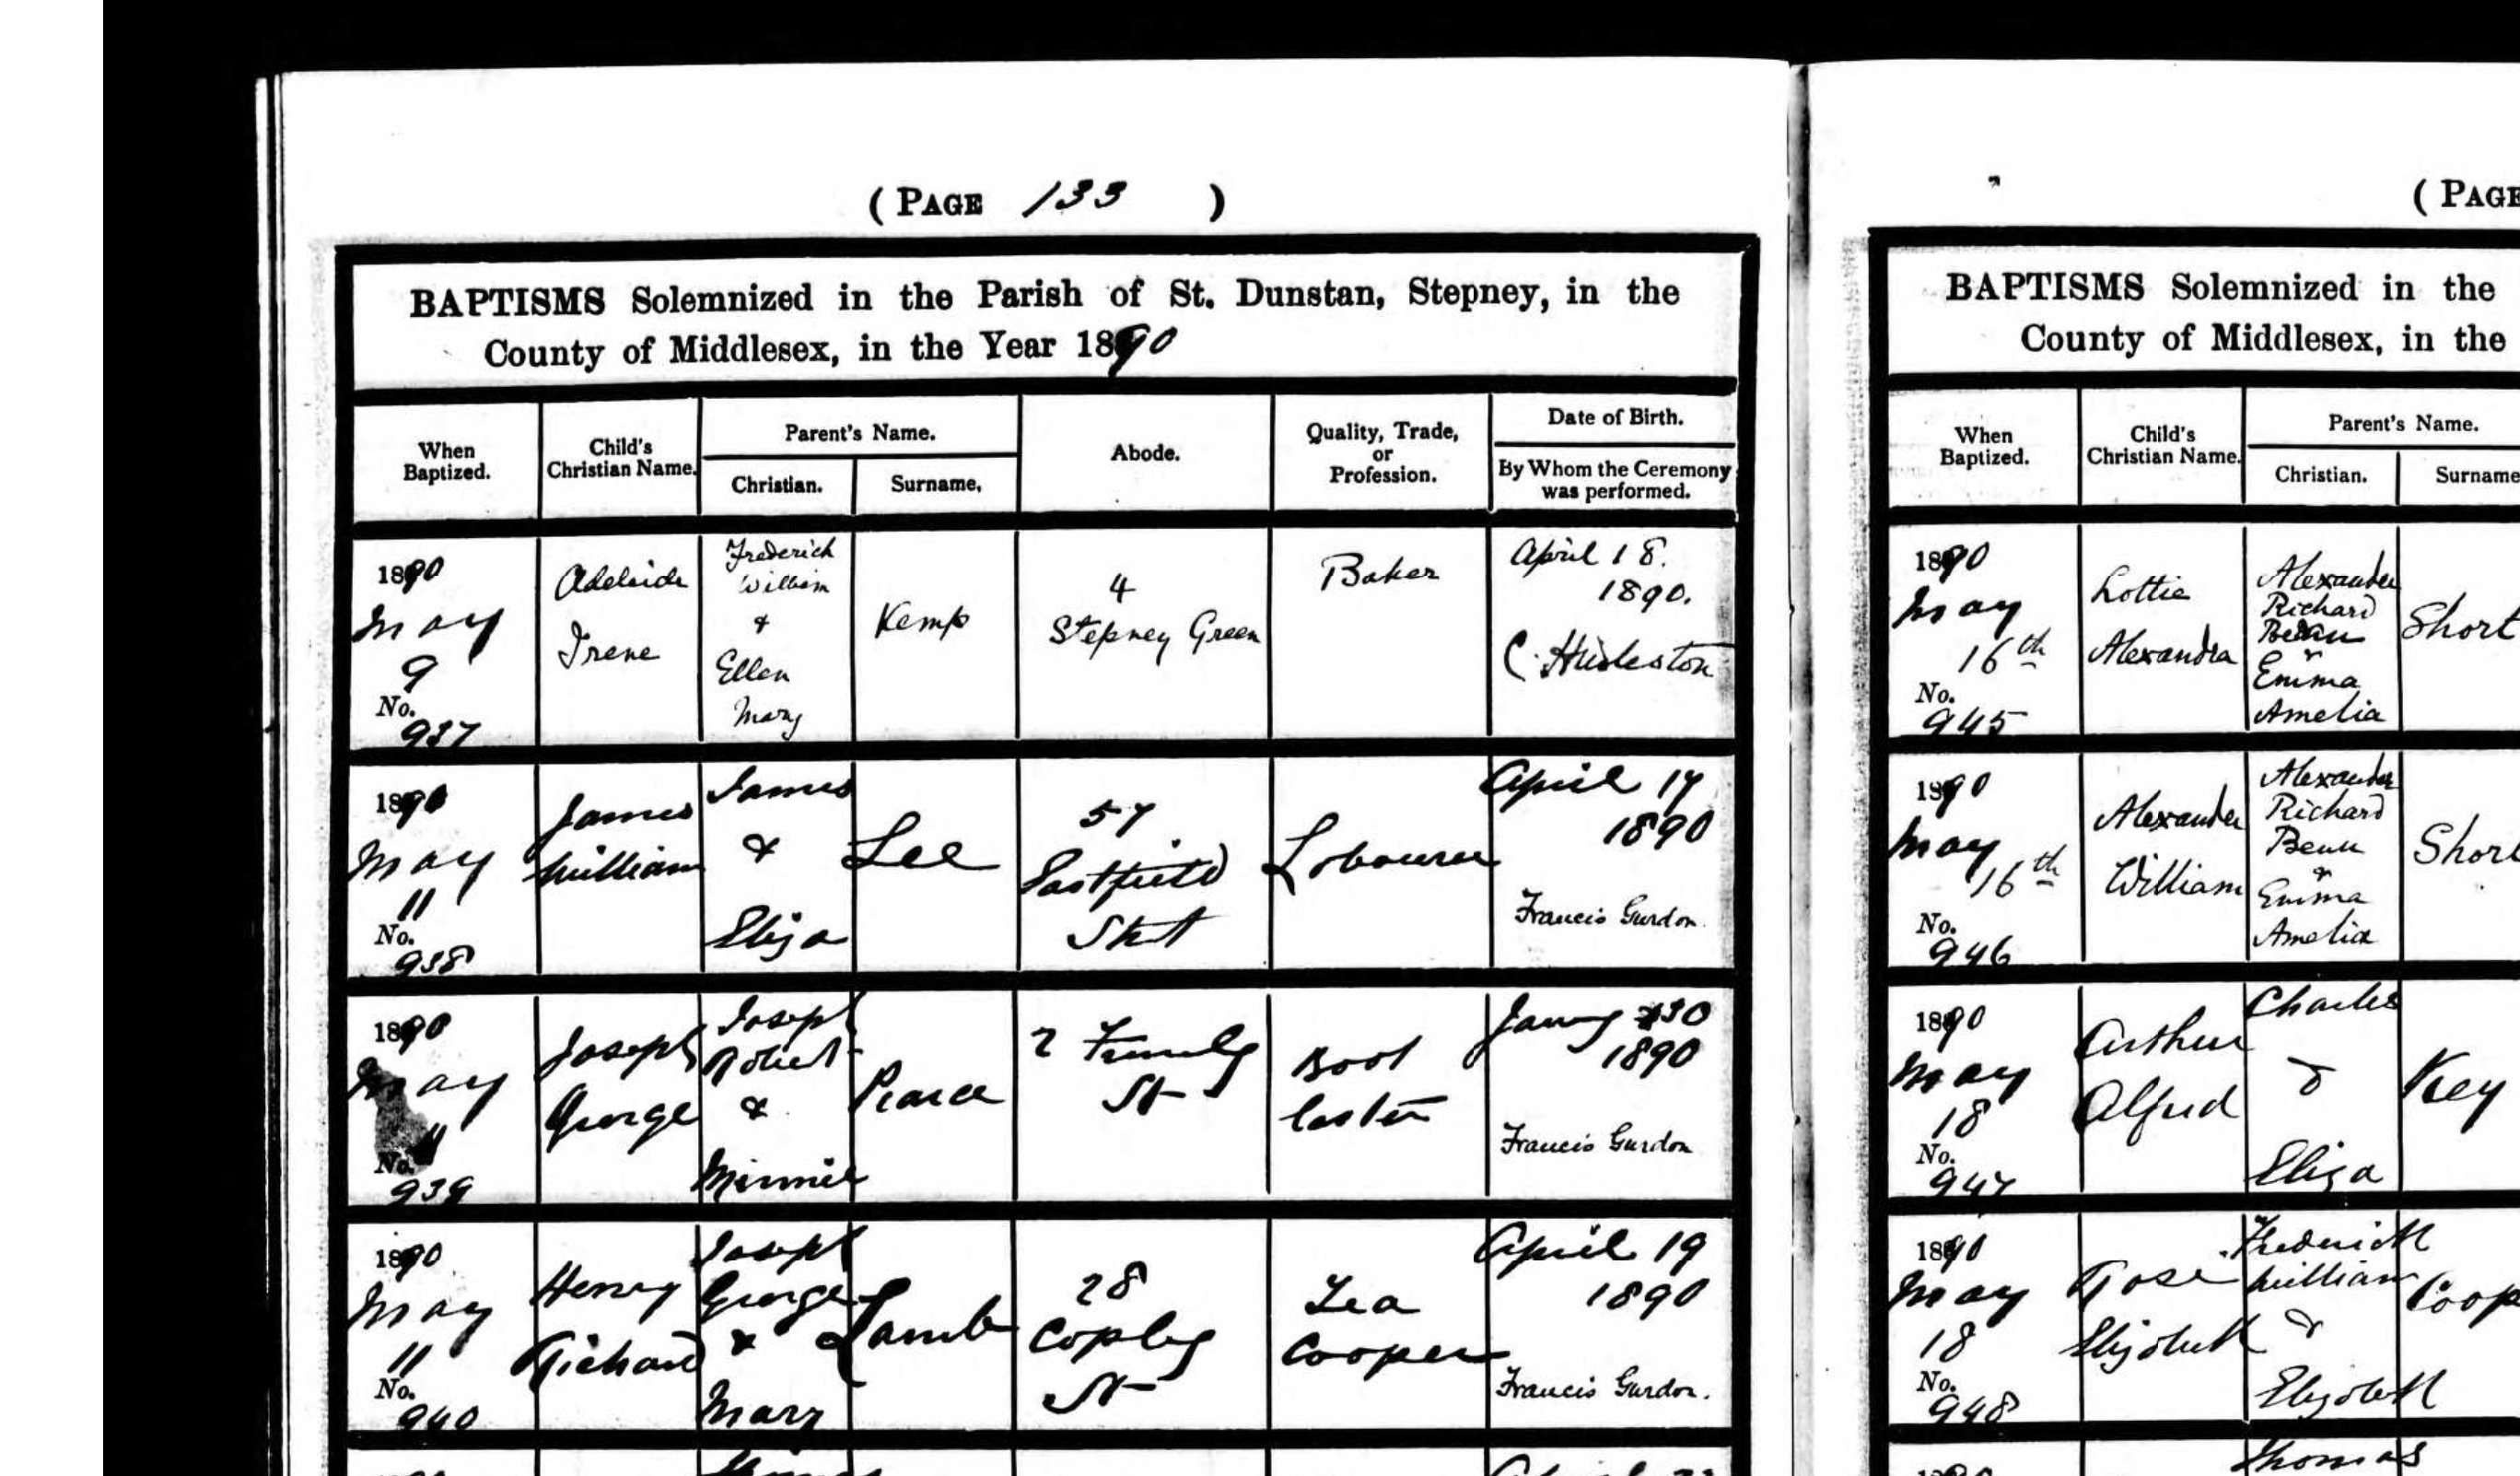 ( PAGE 133 )
BAPTISMS Solemnized in the Parish of St. Dunstan, Stepney, in the
County of Middlesex, in the Year 1890
When
Baptized.
Child's
Christian Name.
Parent's Name.
Christian.
Surname.
Abode.
Quality, Trade,
or
Profession.
Date of Birth.
By Whom the Ceremony
was performed.
1890
May
9
No.
937
Adelaide
Irene
Frederick
William
&
Ellen
Mary
Kemp
4
Stepney Green
Baker
April 18.
1890.
C.
1890
May
11
No.
938
James
William
James
&
Eliza
Lee
57
Eastfield
Labourer
April 17
1890
Francis Gurdon
1890
May
11
No.
939
Joseph
George
Joseph
Robert
&
Minnie
Pearce
2
St
Boot
1890
Francis Gurdon
1890
May
11
No.
940
Henry
Richard
Joseph
George
&
Mary
Lamb
28
Copley
St
Tea
Cooper
April 19
1890
Francis Gurdon.
( PAGE
BAPTISMS Solemnized in the
County of Middlesex, in the
When
Baptized.
Child's
Christian Name.
Parent's Name.
Christian.
Surname
1890
May
16th
No.
945
Lottie
Alexandra
Alexander
Richard
&
Emma
Amelia
Short
1890
May
16th
No.
946
Alexander
William
Alexander
Richard
&
Emma
Amelia
Short
1890
May
18
No.
947
Arthur
Alfred
Charles
&
Eliza
Key
1890
May
18
No.
948
Rose
Elizabeth
Frederick
William
&
Elizabeth
Coop
Thomas